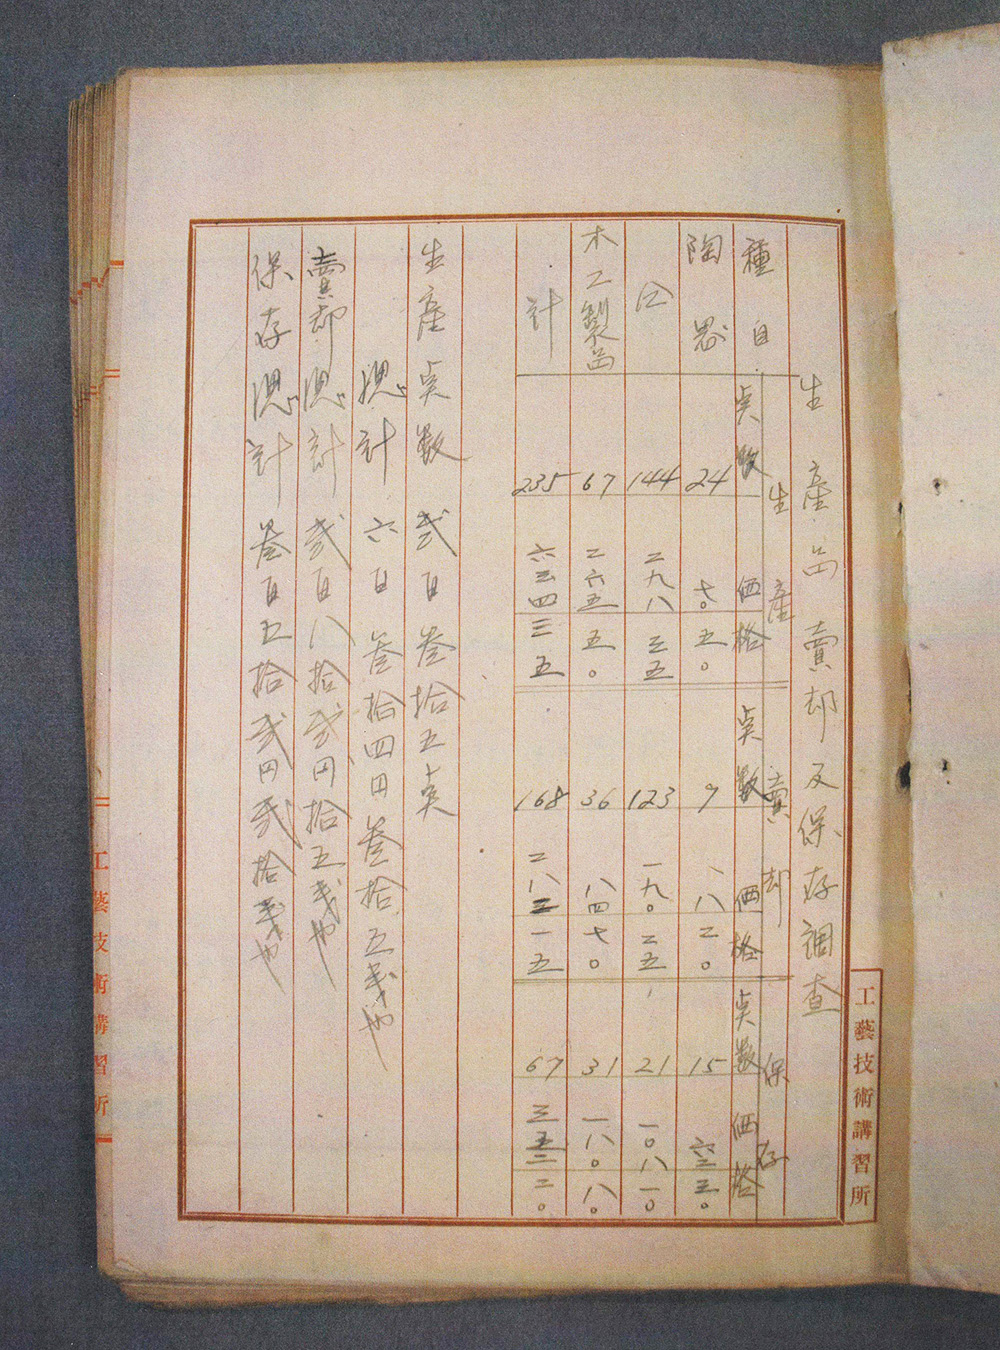 工藝技術講習所
生産品賣却及保存調査
生産 賣却 保存
種目 点数 価格 点数 価格 点数 価格
陶器 24 七〇 五〇 9 八 二〇 15 六二 三〇
仝 144 二九八 三五 123 一九〇 二五 21 一〇八 一〇
木工製品 67 二六五 五〇 36 八四 七〇 31 一八〇 八〇
計 235 六三四 三五 168 二八三 一五 67 三五二 二〇
生産点数 弐百叁拾五点
総計 六百叁拾四円叁拾五戋也
賣却総計 弐百八拾弐円拾五戋也
保存総計 叁百五拾弐円弐拾戋也
工藝技術講習所